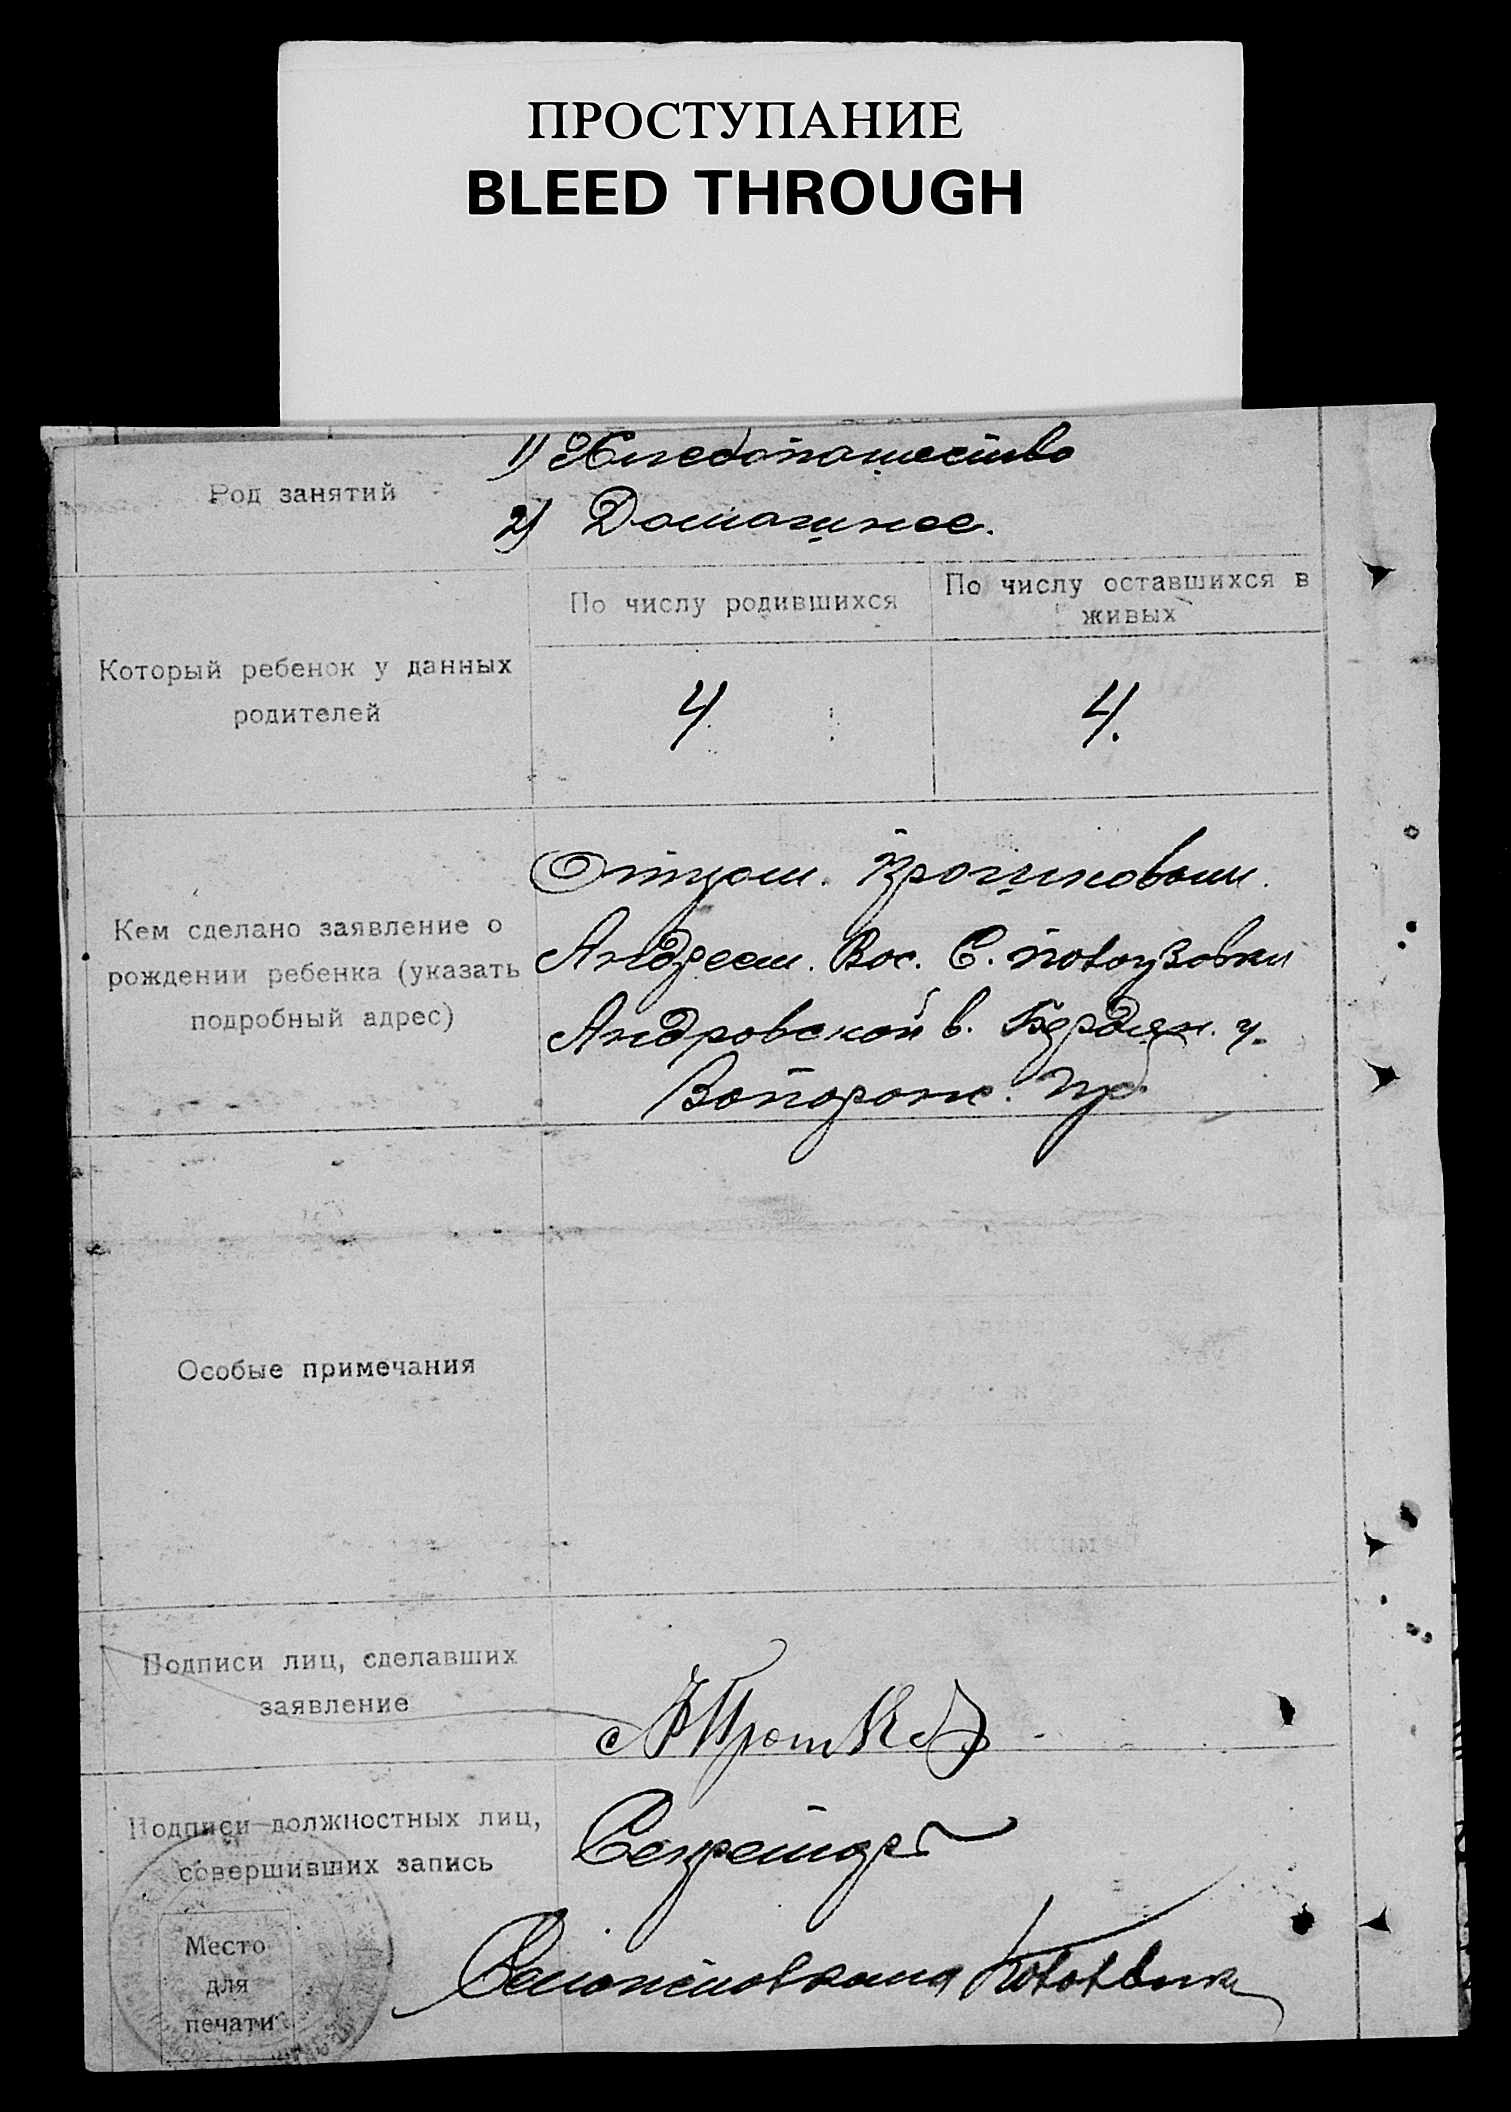 ПРОСТУПАНИЕ
BLEED THROUGH
Род занятий
1) Хлебопашество
2) Домашнее.
Который ребенок у данных
родителей
По числу родившихся
По числу оставшихся в
живых
4
4.
Кем сделано заявление о
рождении ребенка (указать
подробный адрес)
Отцом. Прошковым.
Андреем. Вас. С.
Андровской в. Бердян. у.
Запорож. губ.
Особые примечания
Подписи лиц, сделавших
заявление
Подписи должностных лиц,
совершивших запись
Секретарь
Место
для
печати